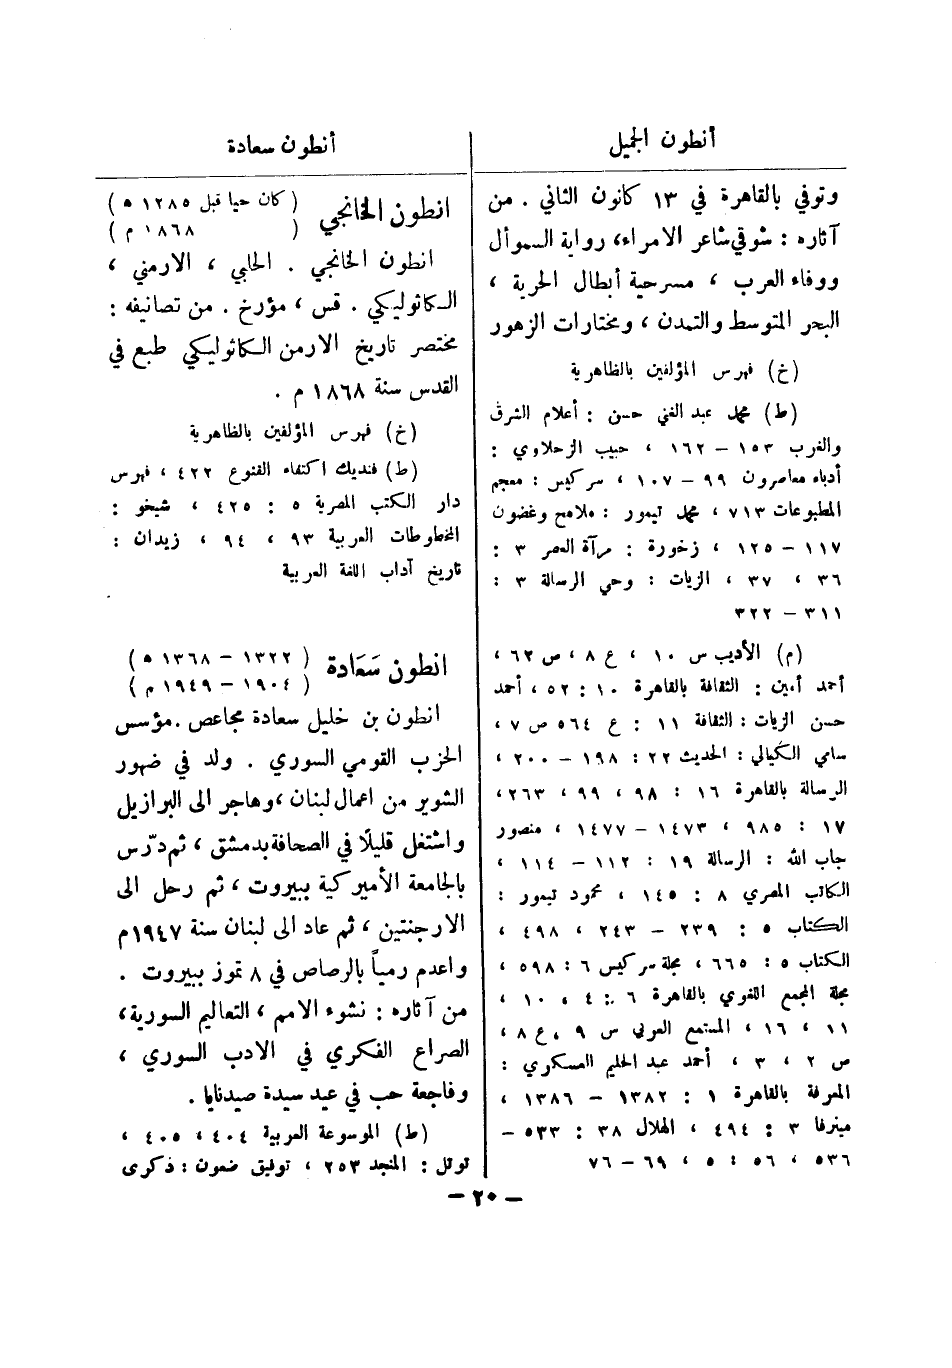 أنطون الجميل
وتوفي بالقاهرة في ١٣ كانون الثاني . من
آثاره : شوقي شاعر الامراء، رواية السموأل
ووفاء العرب ، مسرحية أبطال الحرية ،
البحر المتوسط والتمدن ، ومختارات الزهور
(خ) فهرس المؤلفين بالظاهرية
(ط) محمد عبد الغني حسن : أعلام الشرق
والغرب ١٥٣ – ١٦٢ ، حبيب الزحلاوي :
أدباء معاصرون ٩٩ – ١٠٧ ، سركيس : معجم
المطبوعات ٧١٣ ، محمد تيمور : ملامح وغضون
١١٧ – ١٢٥ ، زخورة : مرآة العصر ٣ :
٣٦ ، ٣٧ ، الزيات : وحي الرسالة ٣ :
٣١١ – ٣٢٢
(م) الأديب س ١٠ ، ع ٨ ، ص ٦٢ ،
أحمد أمين : الثقافة بالقاهرة ١٠ : ٥٢ ، أحمد
حسن الزيات : الثقافة ١١ : ع ٥٦٤ ص ٧ ،
سامي الكيالي : الحديث ٢٢ : ١٩٨ – ٢٠٠ ،
الرسالة بالقاهرة ١٦ : ٩٨ ، ٩٩ ، ٢٦٣ ،
١٧ : ٩٨٥ ، ١٤٧٣ – ١٤٧٧ ، منصور
جاب الله : الرسالة ١٩ : ١١٢ – ١١٤ ،
الكاتب المصري ٨ : ١٤٥ ، محمود تيمور :
الكتاب ٥ : ٢٣٩ – ٢٤٣ ، ٤٩٨ ،
الكتاب ٥ : ٦٦٥ ، مجلة سركيس ٦ : ٥٩٨ ،
مجلة المجمع اللغوي بالقاهرة ٦ : ٤ ، ١٠ ،
١١ ، ١٦ ، المستمع العربي س ٩ ، ع ٨ ،
ص ٢ ، ٣ ، أحمد عبد الحليم العسكري :
المعرفة بالقاهرة ١ : ١٣٨٢ – ١٣٨٦ ،
مينرفا ٣ : ٤٩٤ ، الهلال ٣٨ : ٥٣٣ –
٥٣٦ ، ٥٦ : ٥ ، ٦٩ – ٧٦
أنطون سعادة
انطون الخانجي (كان حيا قبل ١٢٨٥ ه)
( ١٨٦٨ م )
انطون الخانجي . الحلبي ، الارمني ،
الكاثوليكي . قس ، مؤرخ . من تصانيفه :
مختصر تاريخ الارمن الكاثوليكي طبع في
القدس سنة ١٨٦٨ م .
(خ) فهرس المؤلفين بالظاهرية
(ط) فنديك اكتفاء القنوع ٤٢٢ ، فهرس
دار الكتب المصرية ٥ : ٤٢٥ ، شيخو :
المخطوطات العربية ٩٣ ، ٩٤ ، زيدان :
تاريخ آداب اللغة العربية
انطون سَعَادة ( ١٣٢٢ – ١٣٦٨ ه )
( ١٩٠٤ – ١٩٤٩ م )
انطون بن خليل سعادة مجاعص . مؤسس
الحزب القومي السوري . ولد في ضهور
الشوير من اعمال لبنان ، وهاجر الى البرازيل
واشتغل قليلًا في الصحافة بدمشق ، ثم درّس
بالجامعة الأميركية ببيروت ، ثم رحل الى
الارجنتين ، ثم عاد الى لبنان سنة ١٩٤٧ م
واعدم رمياً بالرصاص في ٨ تموز ببيروت .
من آثاره : نشوء الامم ، التعاليم السورية ،
الصراع الفكري في الادب السوري ،
وفاجعة حب في عيد سيدة صيدنايا .
(ط) الموسوعة العربية ٤٠٤ ، ٤٠٥ ،
توتل : المنجد ٢٥٣ ، توفيق ضعون : ذكرى
– ٢٠ –